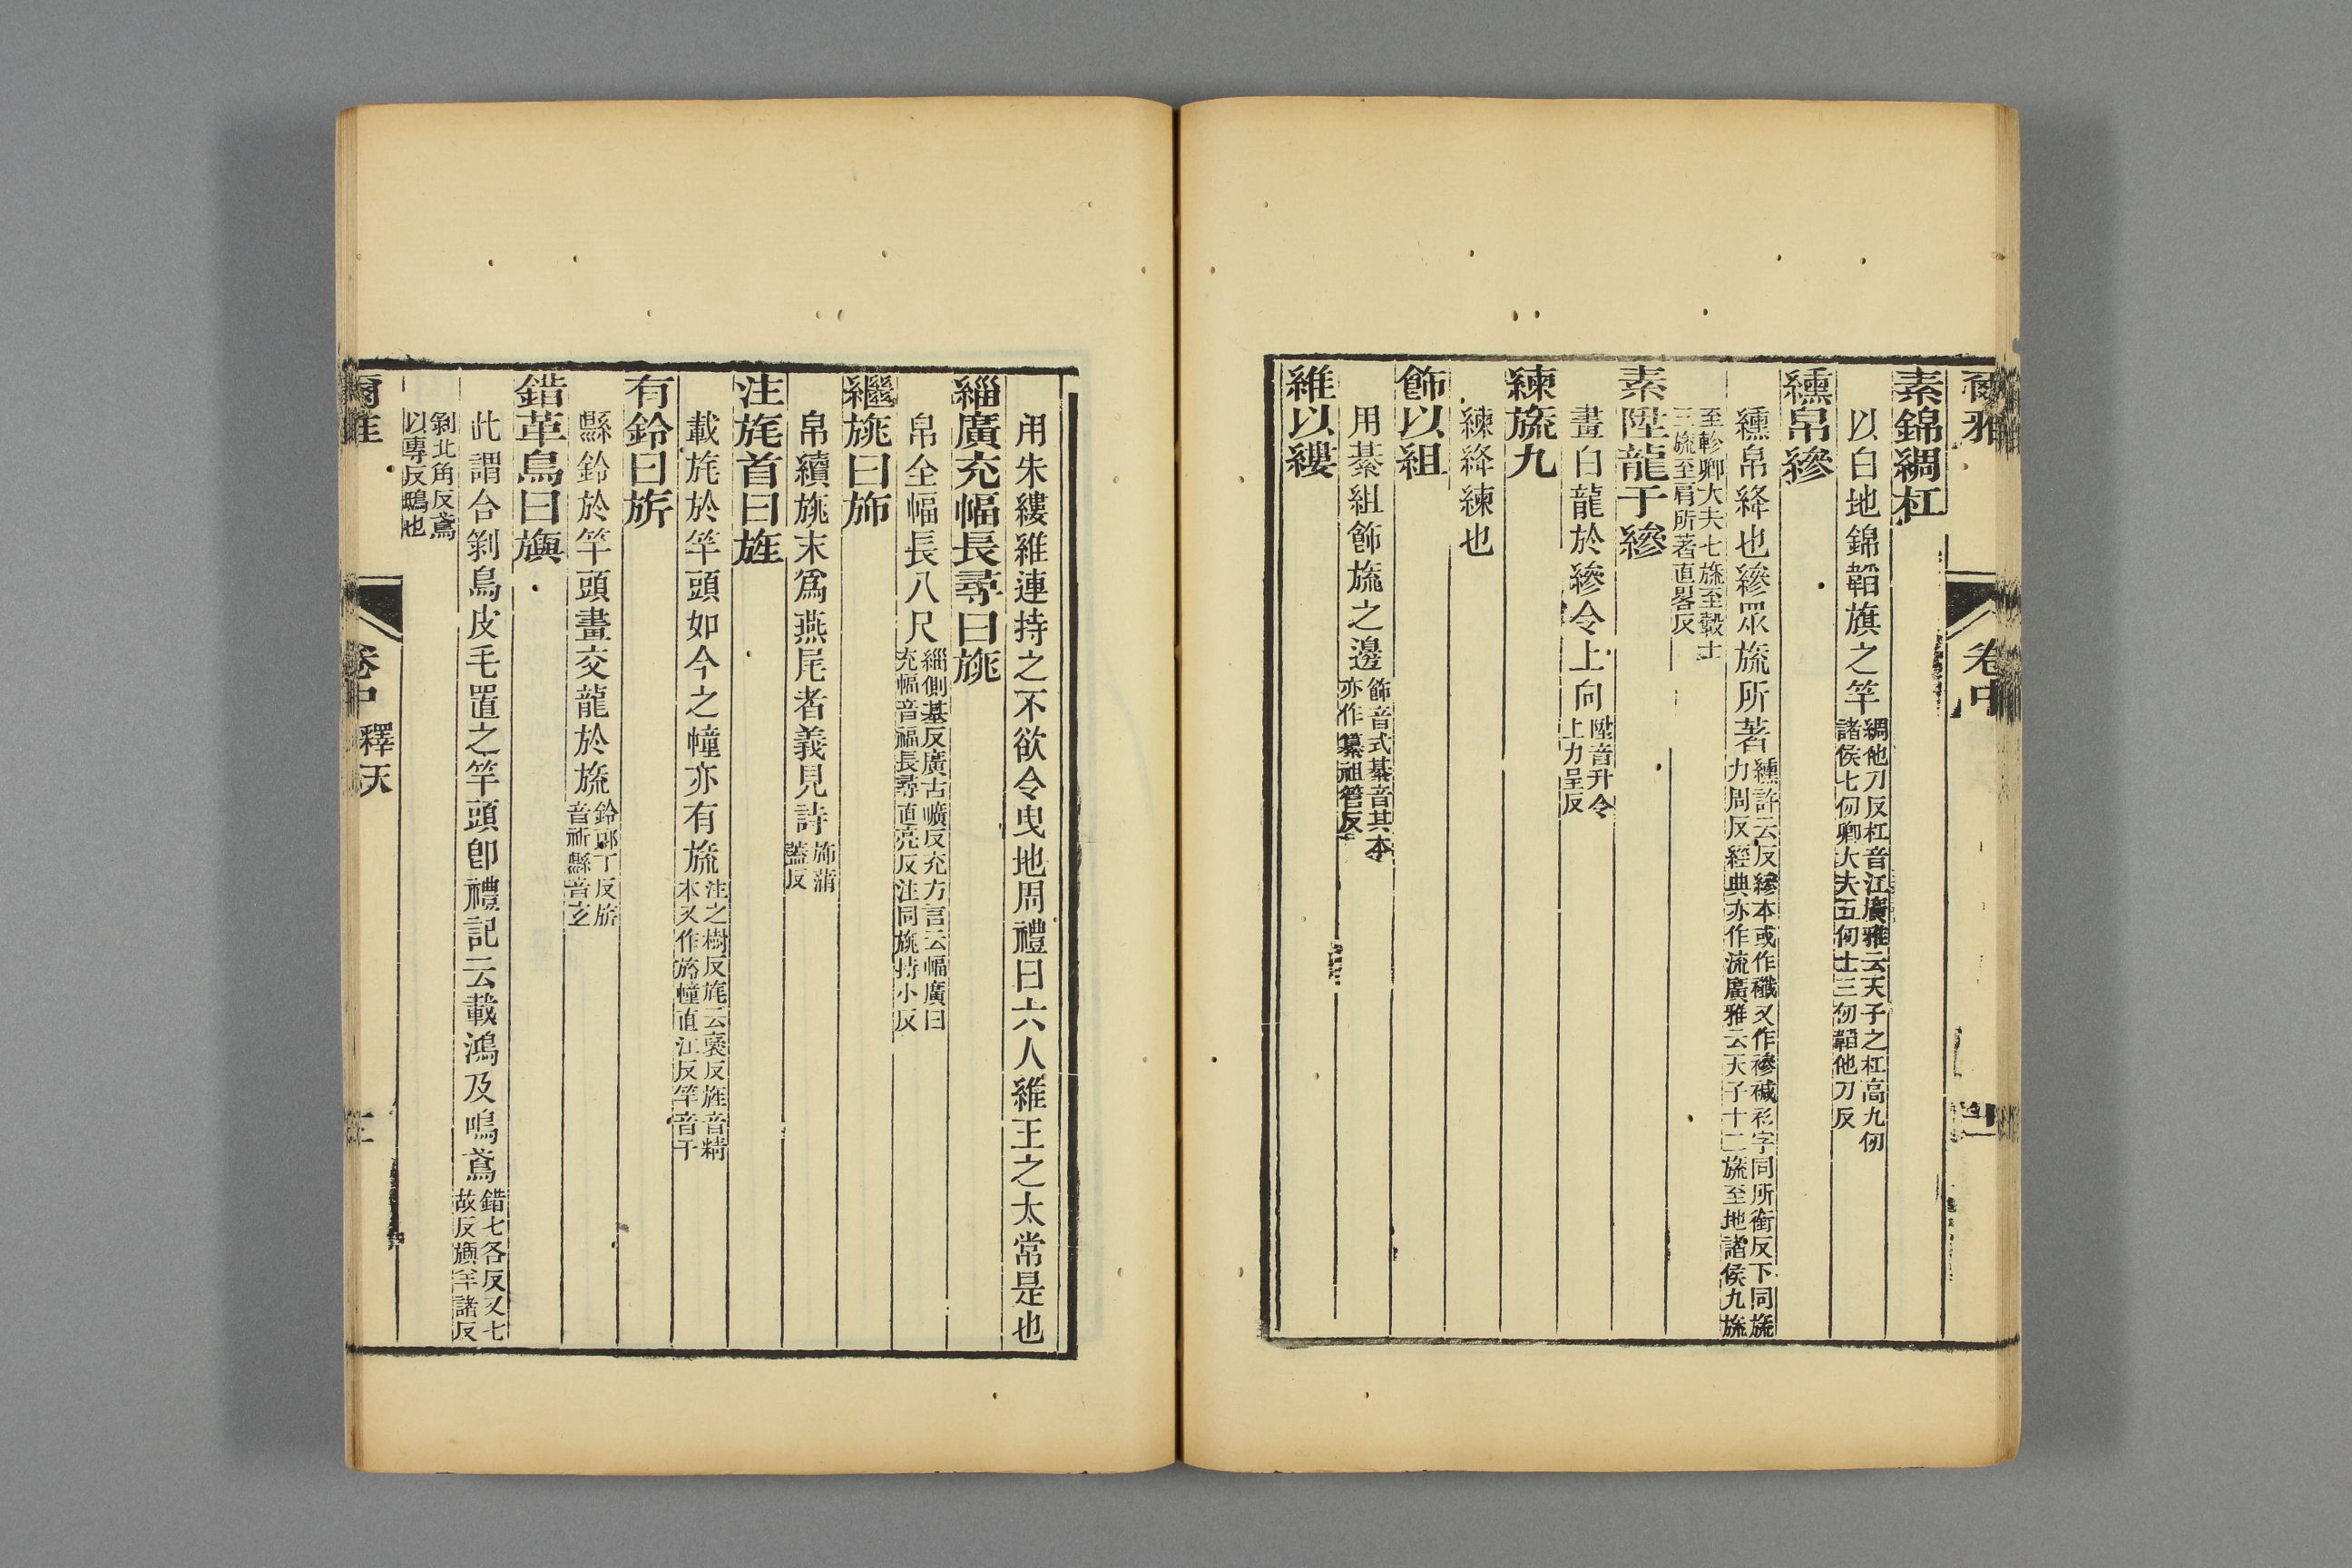 爾雅
卷中
素錦綢杠
以白地錦韜旗之竿綢他刀反杠音江廣雅云天子之杠高九仞
諸侯七仞卿大夫五仞士三仞韜他刀反
纁帛縿
纁帛絳也縿眾旒所著纁許云反縿本或作襳又作襂襳衫字同所銜反下同旒
力周反經典亦作流廣雅云天子十二旒至地諸侯九旒
至軫卿大夫七旒至轂士
三旒至肩所著直畧反
素陞龍于縿
畫白龍於縿令上向陞音升令
上力呈反
練旒九
練絳練也
飾以組
用綦組飾旒之邊飾音式綦音其本
亦作纂祖管反
維以縷
用朱縷維連持之不欲令曳地周禮曰六人維王之太常是也
緇廣充幅長尋曰旐
帛全幅長八尺緇側基反廣古曠反充方言云幅廣曰
充幅音福長尋直亮反注同旐持小反
繼旐曰斾
帛續旐末爲燕尾者義見詩斾蒲
蓋反
注旄首曰旌
載旄於竿頭如今之幢亦有旒注之樹反旄云褒反旌音精
本又作旍幢直江反竿音干
有鈴曰旂
縣鈴於竿頭畫交龍於旒鈴郎丁反旂
音祈縣音玄
錯革鳥曰旟
此謂合剝鳥皮毛置之竿頭卽禮記云載鴻及鳴鳶錯七各反又七
故反旟羊諸反
剝北角反鳶
以專反鴟也
爾雅
卷中
釋天